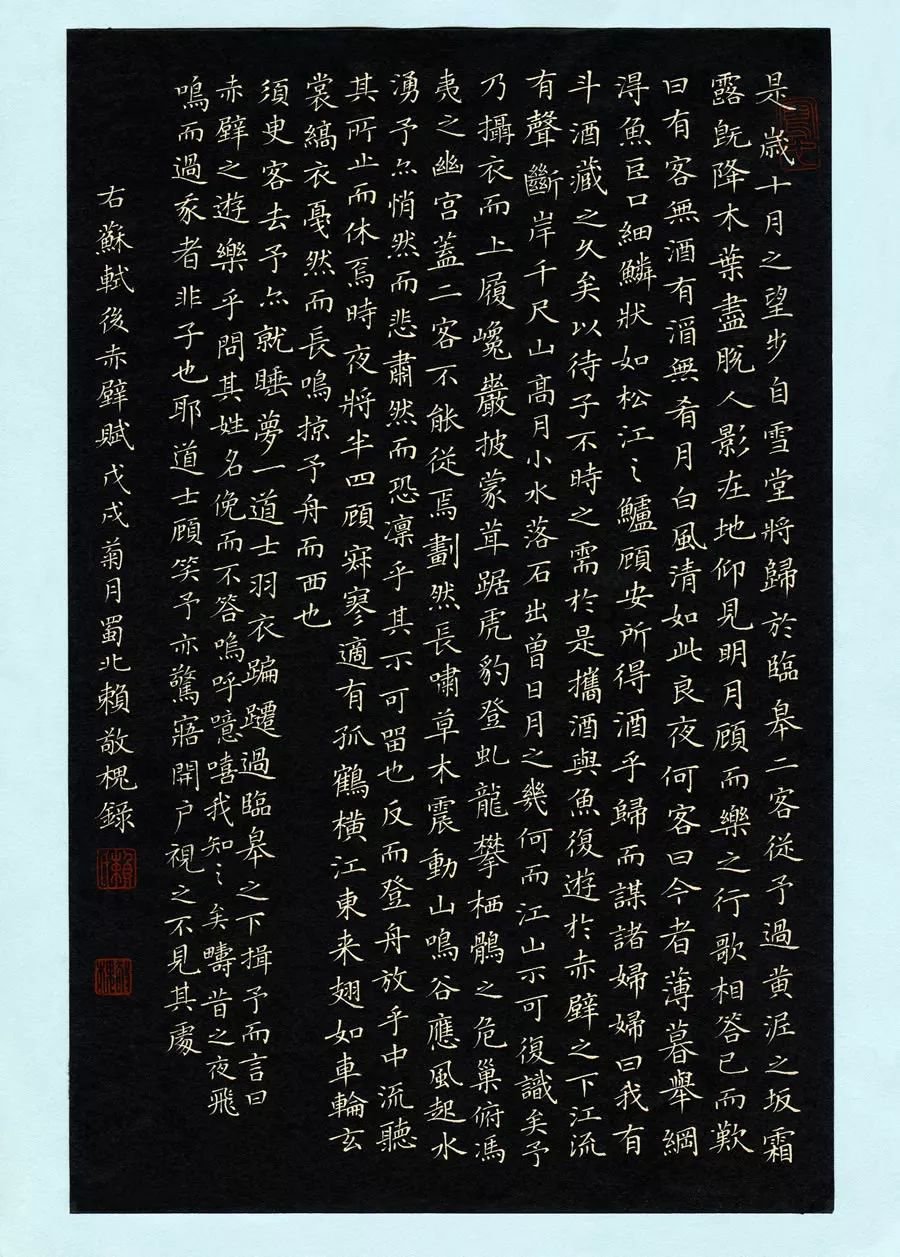 是歲十月之望步自雪堂將歸於臨皋二客從予過黄泥之坂霜
露既降木葉盡脫人影在地仰見明月顧而樂之行歌相答已而歎
曰有客無酒有酒無肴月白風清如此良夜何客曰今者薄暮舉網
得魚巨口細鱗狀如松江之鱸顧安所得酒乎歸而謀諸婦婦曰我有
斗酒藏之久矣以待子不時之需於是攜酒與魚復遊於赤壁之下江流
有聲斷岸千尺山高月小水落石出曾日月之幾何而江山不可復識矣予
乃攝衣而上履巉巖披蒙茸踞虎豹登虬龍攀栖鶻之危巢俯馮
夷之幽宮蓋二客不能從焉劃然長嘯草木震動山鳴谷應風起水
湧予亦悄然而悲肅然而恐凜乎其不可留也反而登舟放乎中流聽
其所止而休焉時夜將半四顧寂寥適有孤鶴橫江東来翅如車輪玄
裳縞衣戛然而長鳴掠予舟而西也
須臾客去予亦就睡夢一道士羽衣蹁躚過臨皋之下揖予而言曰
赤壁之遊樂乎問其姓名俛而不答嗚呼噫嘻我知之矣疇昔之夜飛
鳴而過我者非子也耶道士顧笑予亦驚寤開户視之不見其處
右蘇軾後赤壁賦戊戌菊月蜀北賴敬槐錄